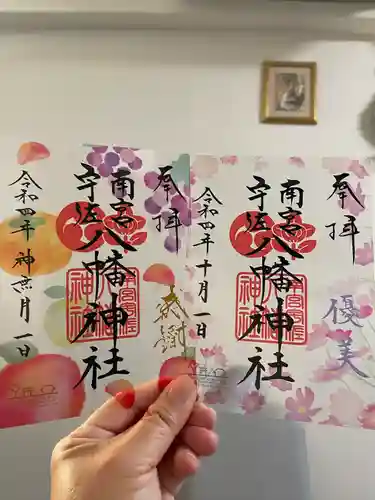 奉拝
感謝
南宮
宇佐
八幡神社
令和四年神無月一日
奉拝
優美
南宮
宇佐
八幡神社
令和四年十月一日